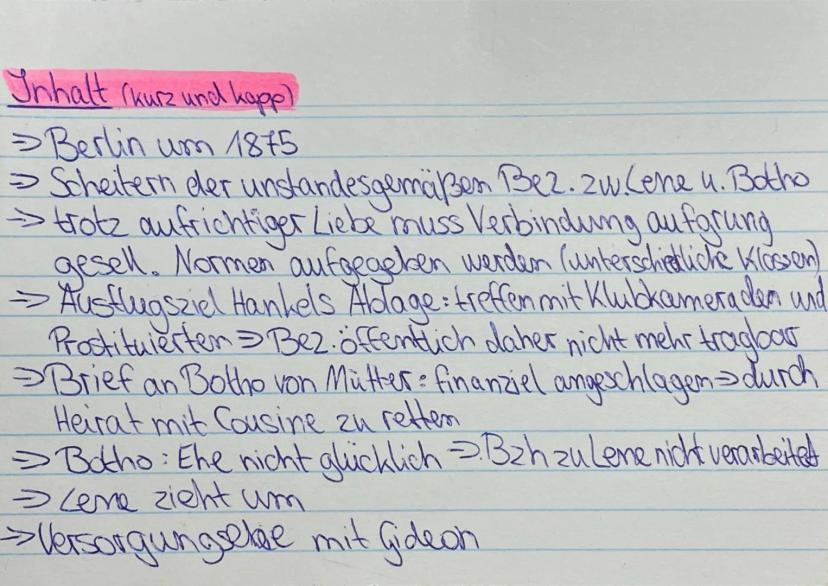 Inhalt (kurz und kapp)
⇒ Berlin um 1875
⇒ Scheitern der unstandesgemäßen Bez. zw. Lene u. Botho
⇒ trotz aufrichtiger Liebe muss Verbindung aufgrung
gesell. Normen aufgegeben werden (unterschiedliche Klassen)
⇒ Ausflugsziel Hankels Ablage: treffen mit Klubkameraden und
Prostituierten ⇒ Bez. öffentlich daher nicht mehr tragbar
⇒ Brief an Botho von Mutter: finanziel angeschlagen ⇒ durch
Heirat mit Cousine zu retten
⇒ Botho: Ehe nicht glücklich ⇒ Bzh zu Lene nicht verarbeitet
⇒ Lene zieht um
⇒ Versorgungsehe mit Gideon